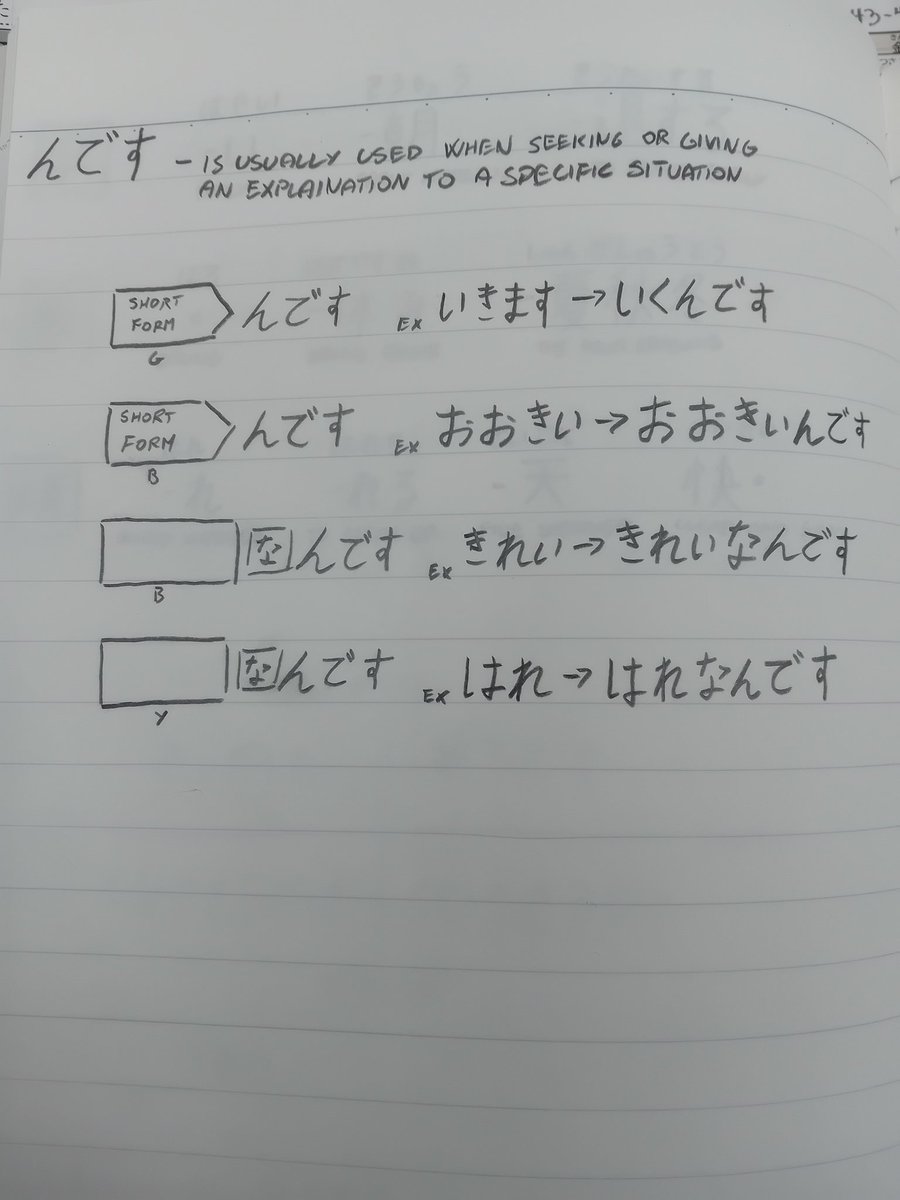 43-
んです - IS USUALLY USED WHEN SEEKING OR GIVING
AN EXPLAINATION TO A SPECIFIC SITUATION
SHORT FORM んです EX いきます→いくんです
G
SHORT FORM んです EX おおきい→おおきいんです
B
なんです EX きれい→きれいなんです
B
なんです EX はれ→はれなんです
Y